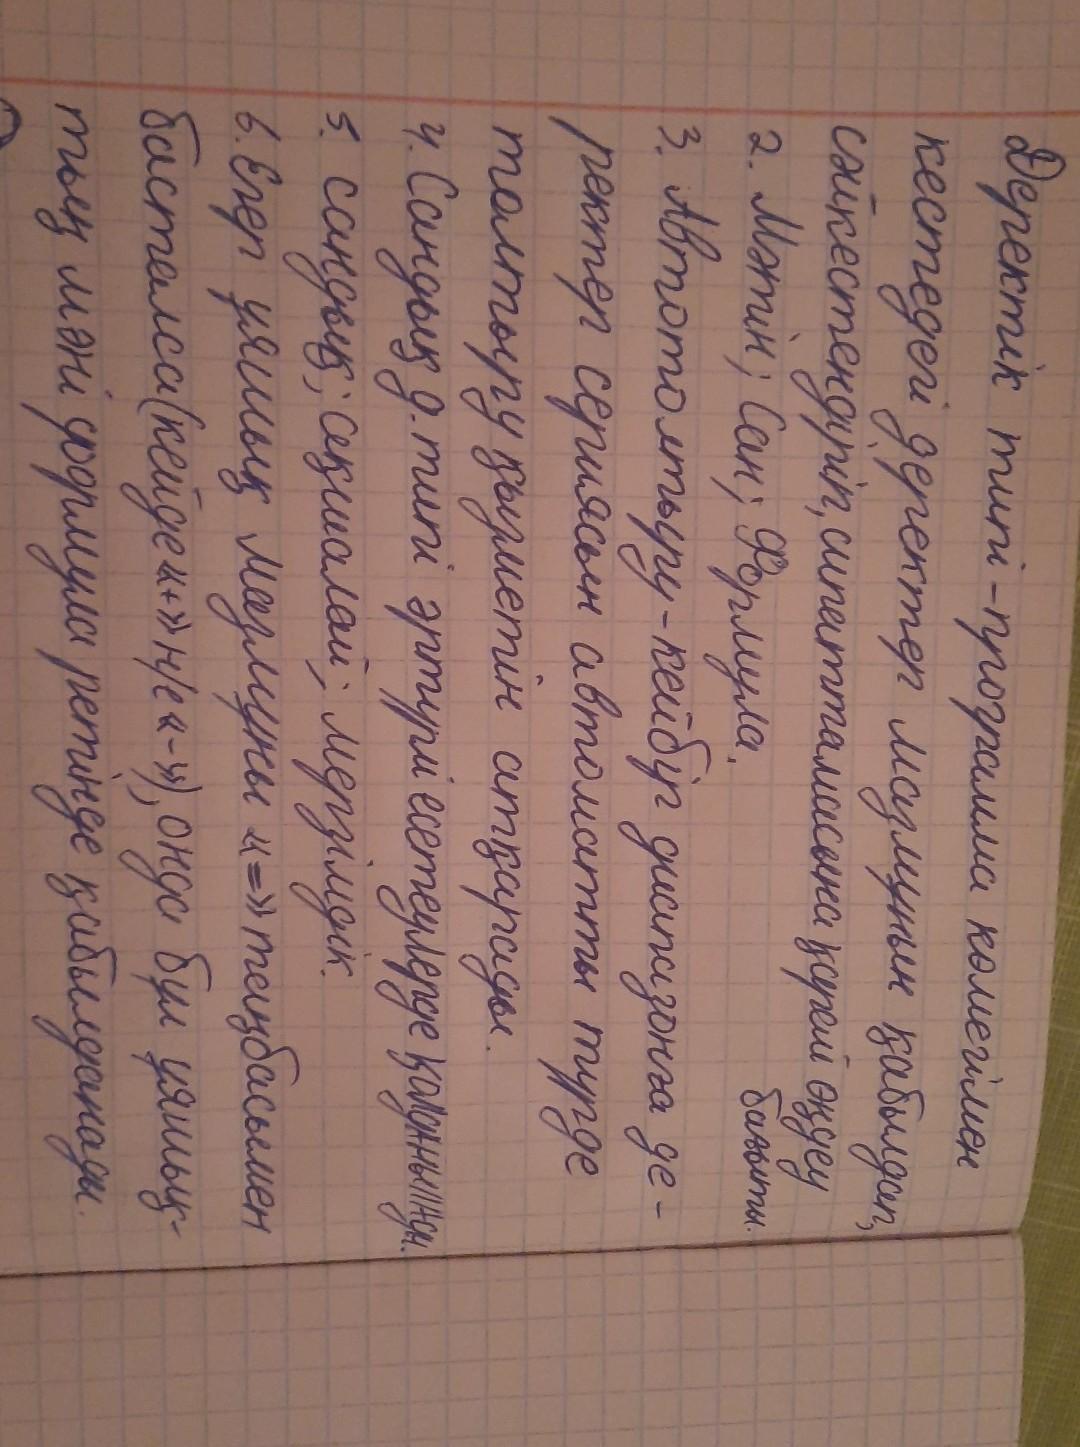 Деректік типі - программа көмегімен
кестедегі деректер мазмұнын қабылдап,
сәйкестендіріп, сипаттамасына қарай өңдеу
бағыты.
2. Мәтін; Сан; Формула.
3. Автотолтыру - кейбір диапазонға де-
ректер сериясын автоматты түрде
толтыру қызметін атқарады.
4. Сандық д. типі әртүрлі есептеулерде қолданылады.
5. сандық; ақшалай; мерзімдік.
6. Егер ұяшық мазмұны «=» теңбасымен
басталса (кейде «+» н/е «-»), онда бұл ұяшық-
тың мәні формула ретінде қабылданады.